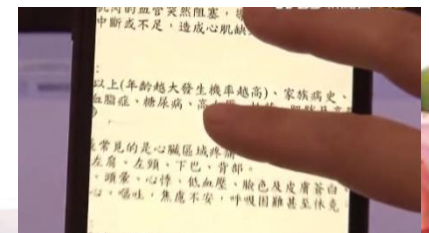 肌肉的血管突然阻塞，導
中斷或不足，造成心肌缺
以上(年齡越大發生機率越高)、家族病史、
血脂症、糖尿病、高
常見的是心臟區域疼
左肩、左頸、下巴、背部。
、頭暈、心悸、低血壓、臉色及皮膚蒼白、
心、嘔吐，焦慮不安，呼吸困難甚至休克